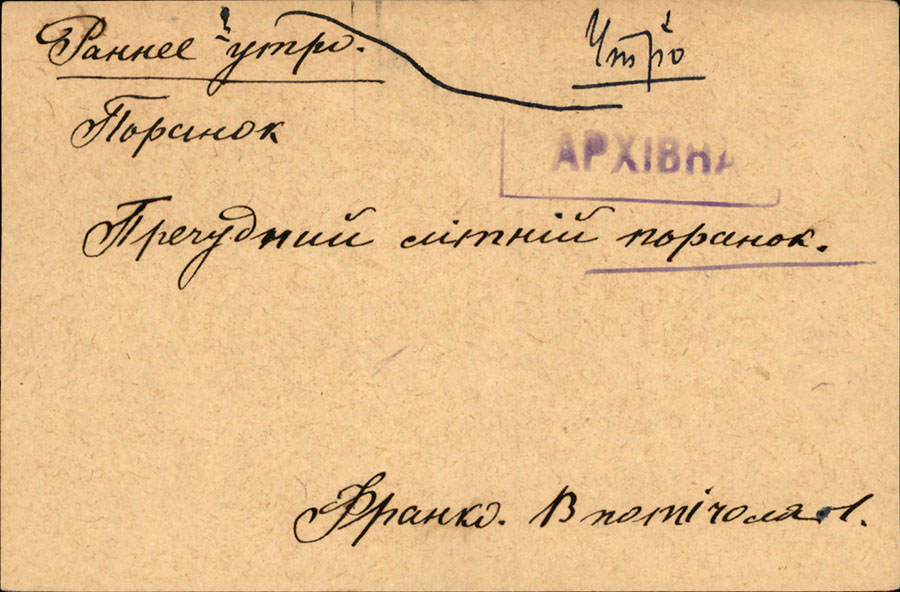 Раннее утро.
Утро
Поранок
АРХІВНА
Пречудний літній поранок.
Франко. В поті чола 1.